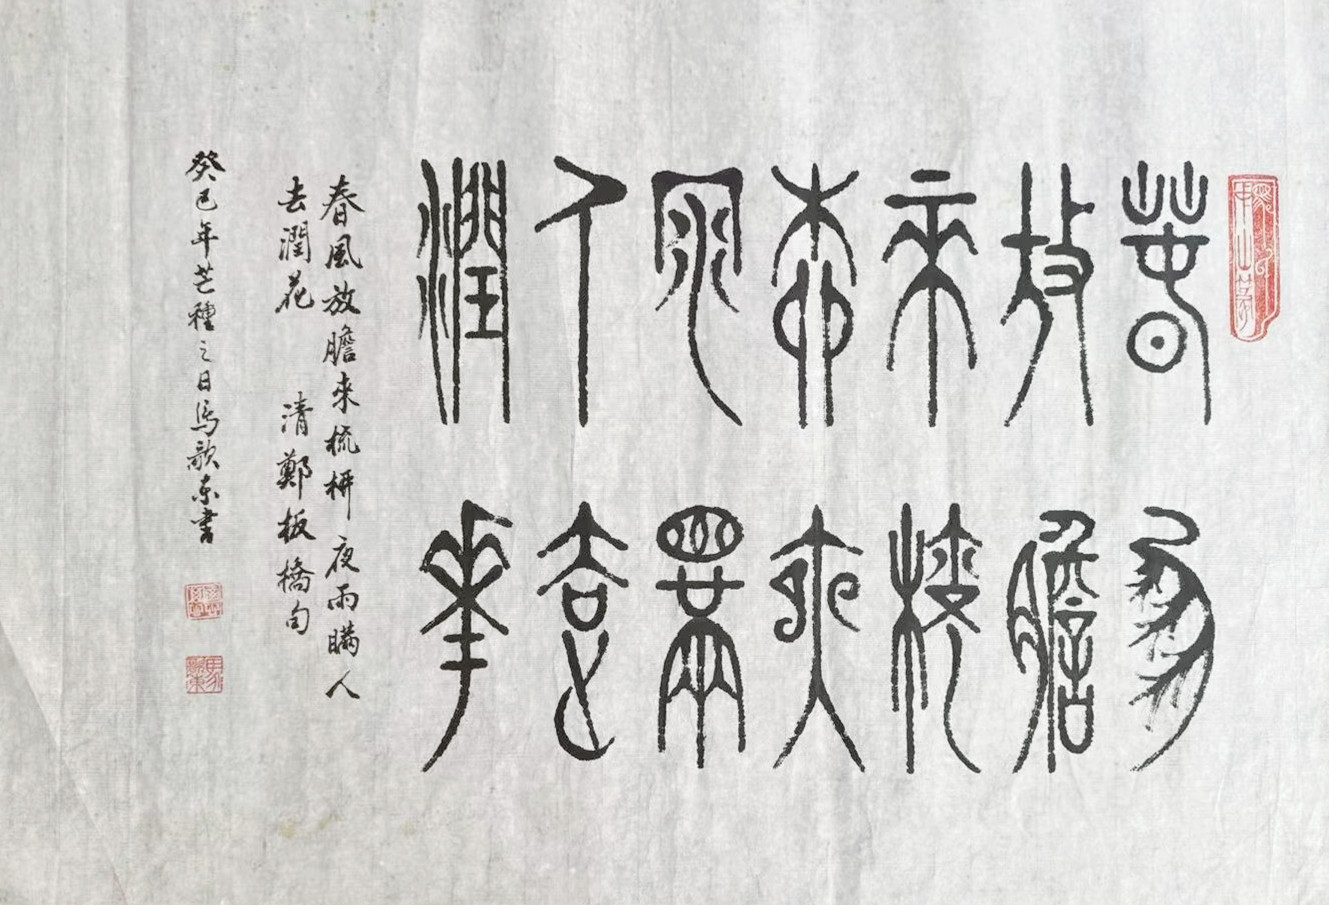 春風
放膽
來梳
柳夜
雨瞞
人去
潤華
春風放膽來梳柳夜雨瞞人
去潤花 清鄭板橋句
癸巳年芒種之日馬歌東書